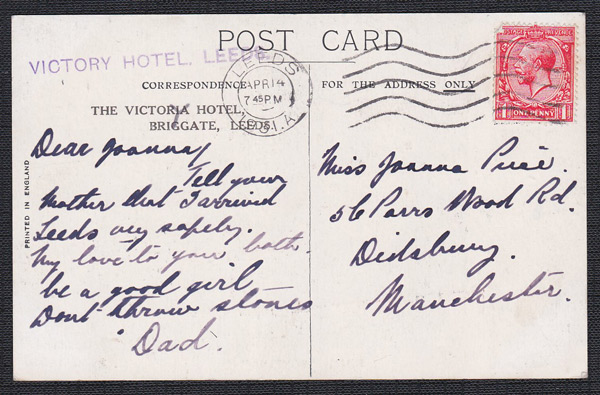 POST CARD
VICTORY HOTEL, LEEDS
LEEDS
APR 14
7 45 PM
CORRESPONDENCE
FOR THE ADDRESS ONLY
THE VICTORIA HOTEL,
BRIGGATE, LEEDS.
PRINTED IN ENGLAND
Dear Joanna
Tell your
Mother that I arrived
Leeds very safely.
My love to you both.
be a good girl
Dont throw stones
Dad.
POSTAGE REVENUE
ONE PENNY
Miss Joanna
56 Parrs Wood Rd.
Didsbury.
Manchester.